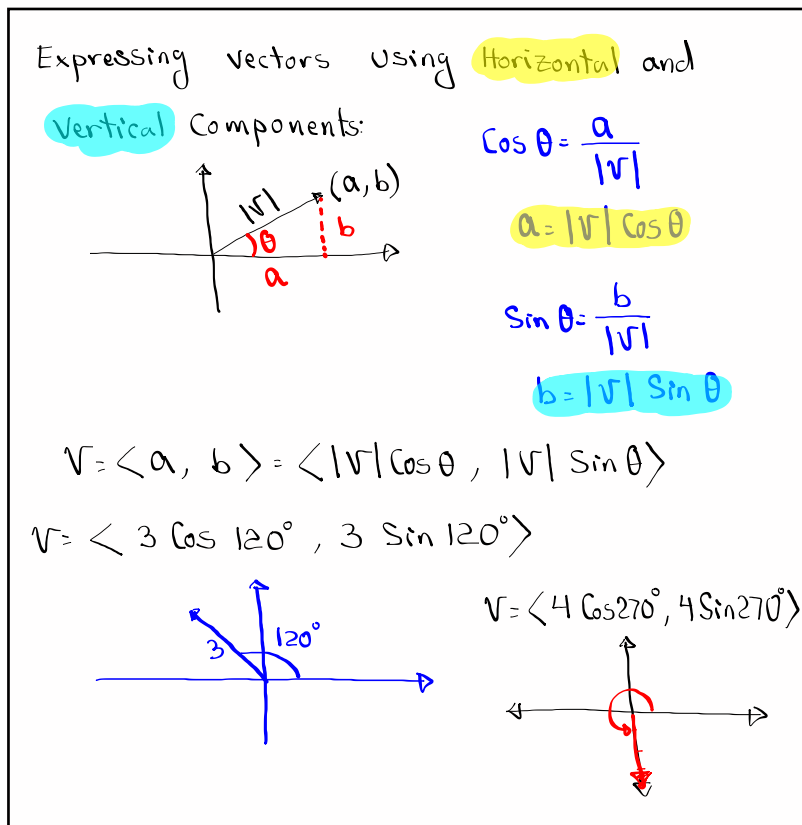 Expressing vectors using Horizontal and
Vertical Components:
Cos θ = a/|V|
|V| (a, b)
θ b
a
a = |V| Cos θ
Sin θ = b/|V|
b = |V| Sin θ
V = <a, b> = <|V| Cos θ, |V| Sin θ>
V = < 3 Cos 120°, 3 Sin 120°>
V = <4 Cos 270°, 4 Sin 270°>
3 120°